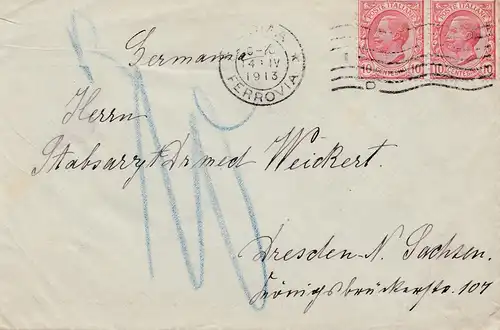 POSTE ITALIANE POSTE ITALIANE
10 CENTESIMI 10 CENTESIMI 10
14 IV
1913
FERROVIA
Germania
Herrn
Stabsarzt Dr med Weickert.
Dresden-N. Sachsen.
Königsbrückerstr. 107